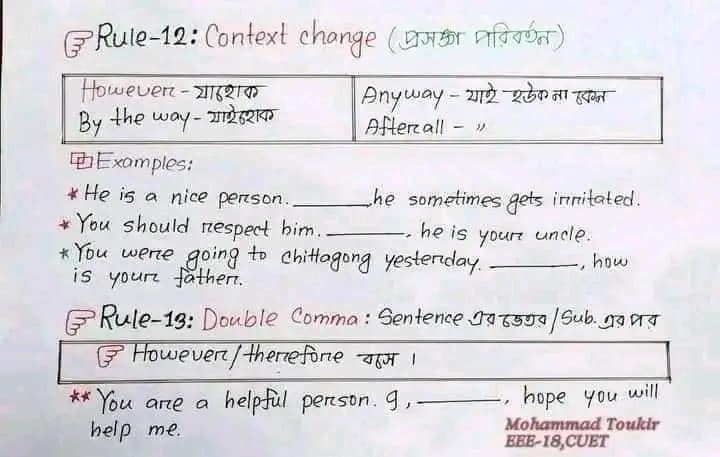 Rule-12: Context change (প্রসঙ্গ পরিবর্তন)
However - যাহোক
By the way - যাইহোক
Anyway - যাই হউক না কেন
After all - "
Examples:
* He is a nice person. ______, he sometimes gets irritated.
* You should respect him. ______, he is your uncle.
* You were going to chittagong yesterday. ______, how
is your father.
Rule-13: Double Comma: Sentence এর ভেতর/Sub. এর পর
However/therefore বসে।
** You are a helpful person. I, ______, hope you will
help me.
Mohammad Toukir
EEE-18,CUET